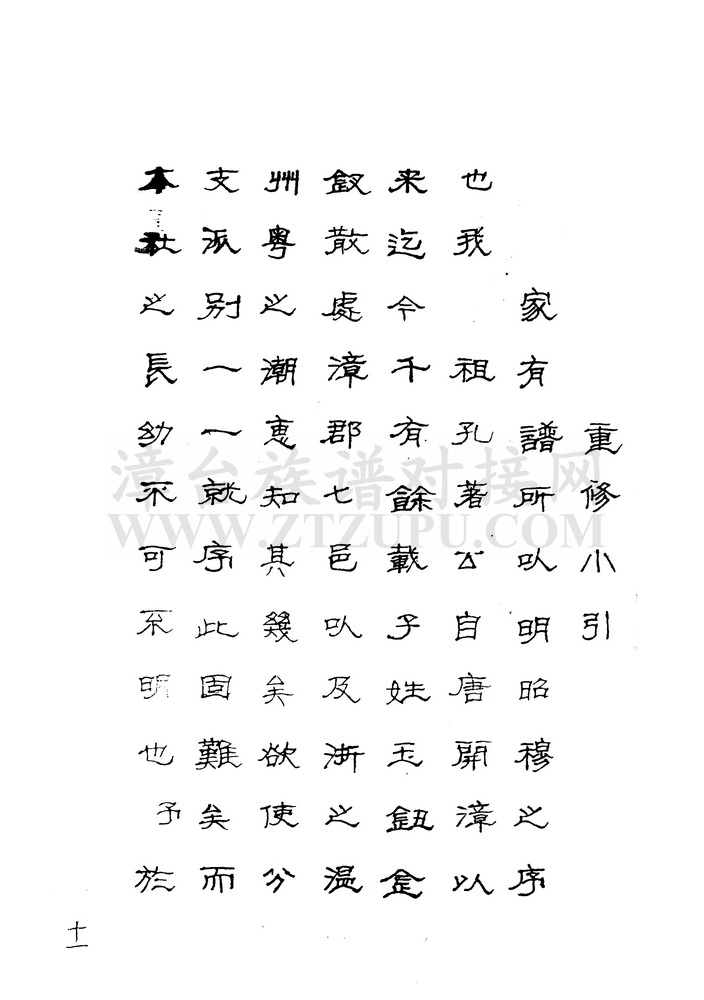 重修小引
家有譜所以明昭穆之序
也我祖孔著公自唐開漳以
来迄今千有餘載子姓玉鈕金
釵散處漳郡七邑以及浙之温
州粤之潮惠知其幾矣欲使分
支派别一一就序此固難矣而
本社之長幼不可不明也予於
十一
漳台族谱对接网
WWW.ZTZUPU.COM